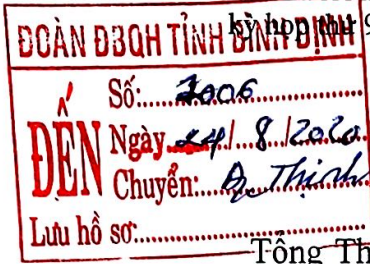 kỳ họp thứ 9
ĐOÀN ĐBQH TỈNH BÌNH ĐỊNH
ĐẾN
Số:.....2006
Ngày 24/8/2020
Chuyển:...Thịnh
Lưu hồ sơ:
Tổng Th